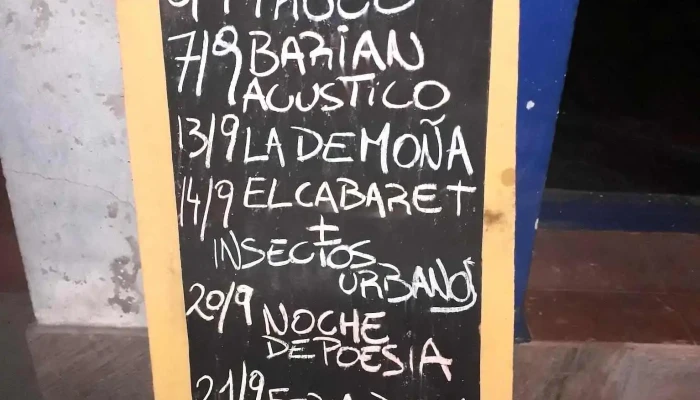 7/9 BARIAN
ACUSTICO
13/9 LA DEMOÑA
14/9 EL CABARET
+
INSECTOS
URBANOS
20/9 NOCHE
DE POESIA
21/9